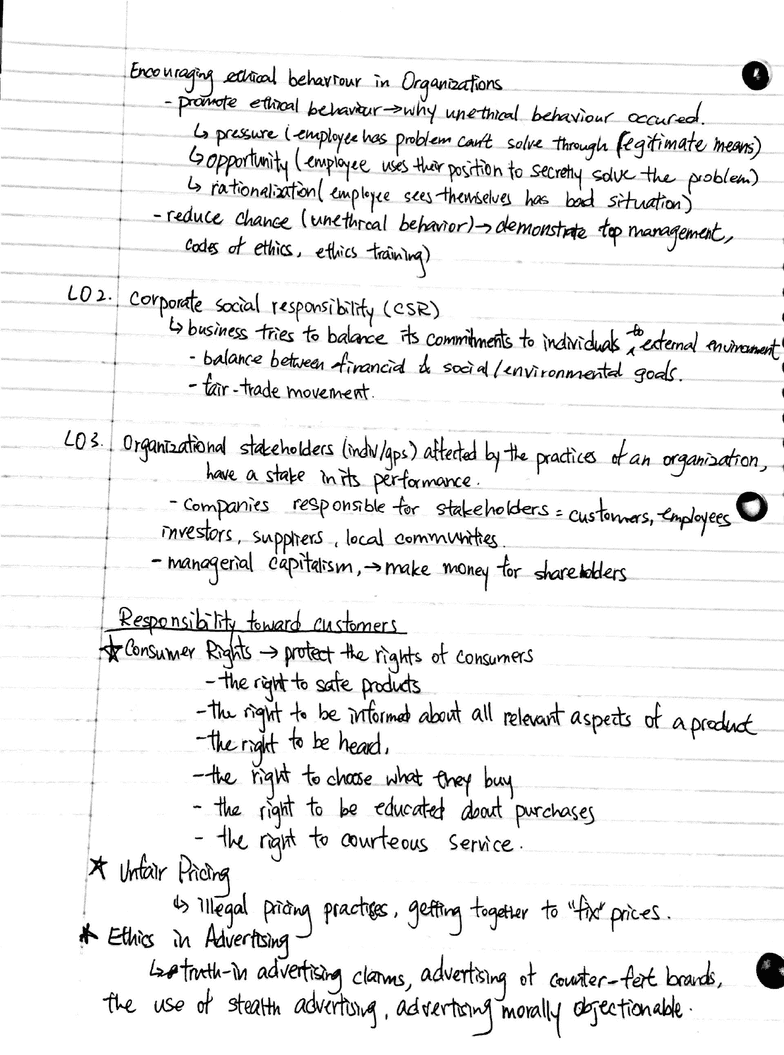 Encouraging ethical behaviour in Organizations
- promote ethical behaviour → why unethical behaviour occured.
↳ pressure (employee has problem can't solve through legitimate means)
↳ opportunity (employee uses their position to secretly solve the problem)
↳ rationalization (employee sees themselves has bad situation)
- reduce chance (unethical behavior) → demonstrate top management,
codes of ethics, ethics training)
LO 2. Corporate social responsibility (CSR)
↳ business tries to balance its commitments to individuals to external environment
- balance between financial & social/environmental goals.
- fair-trade movement.
LO 3. Organizational stakeholders (indiv/gps) affected by the practices of an organization,
have a stake in its performance.
- companies responsible for stakeholders = customers, employees
investors, suppliers, local communities.
- managerial capitalism, → make money for shareholders
Responsibility toward customers
☆ Consumer Rights → protect the rights of consumers
- the right to safe products
- the right to be informed about all relevant aspects of a product
- the right to be heard,
- the right to choose what they buy
- the right to be educated about purchases
- the right to courteous service.
☆ Unfair Pricing
↳ illegal pricing practises, getting together to "fix" prices.
☆ Ethics in Advertising
↳ truth-in advertising claims, advertising of counter-feit brands,
the use of stealth advertising, advertising morally objectionable.